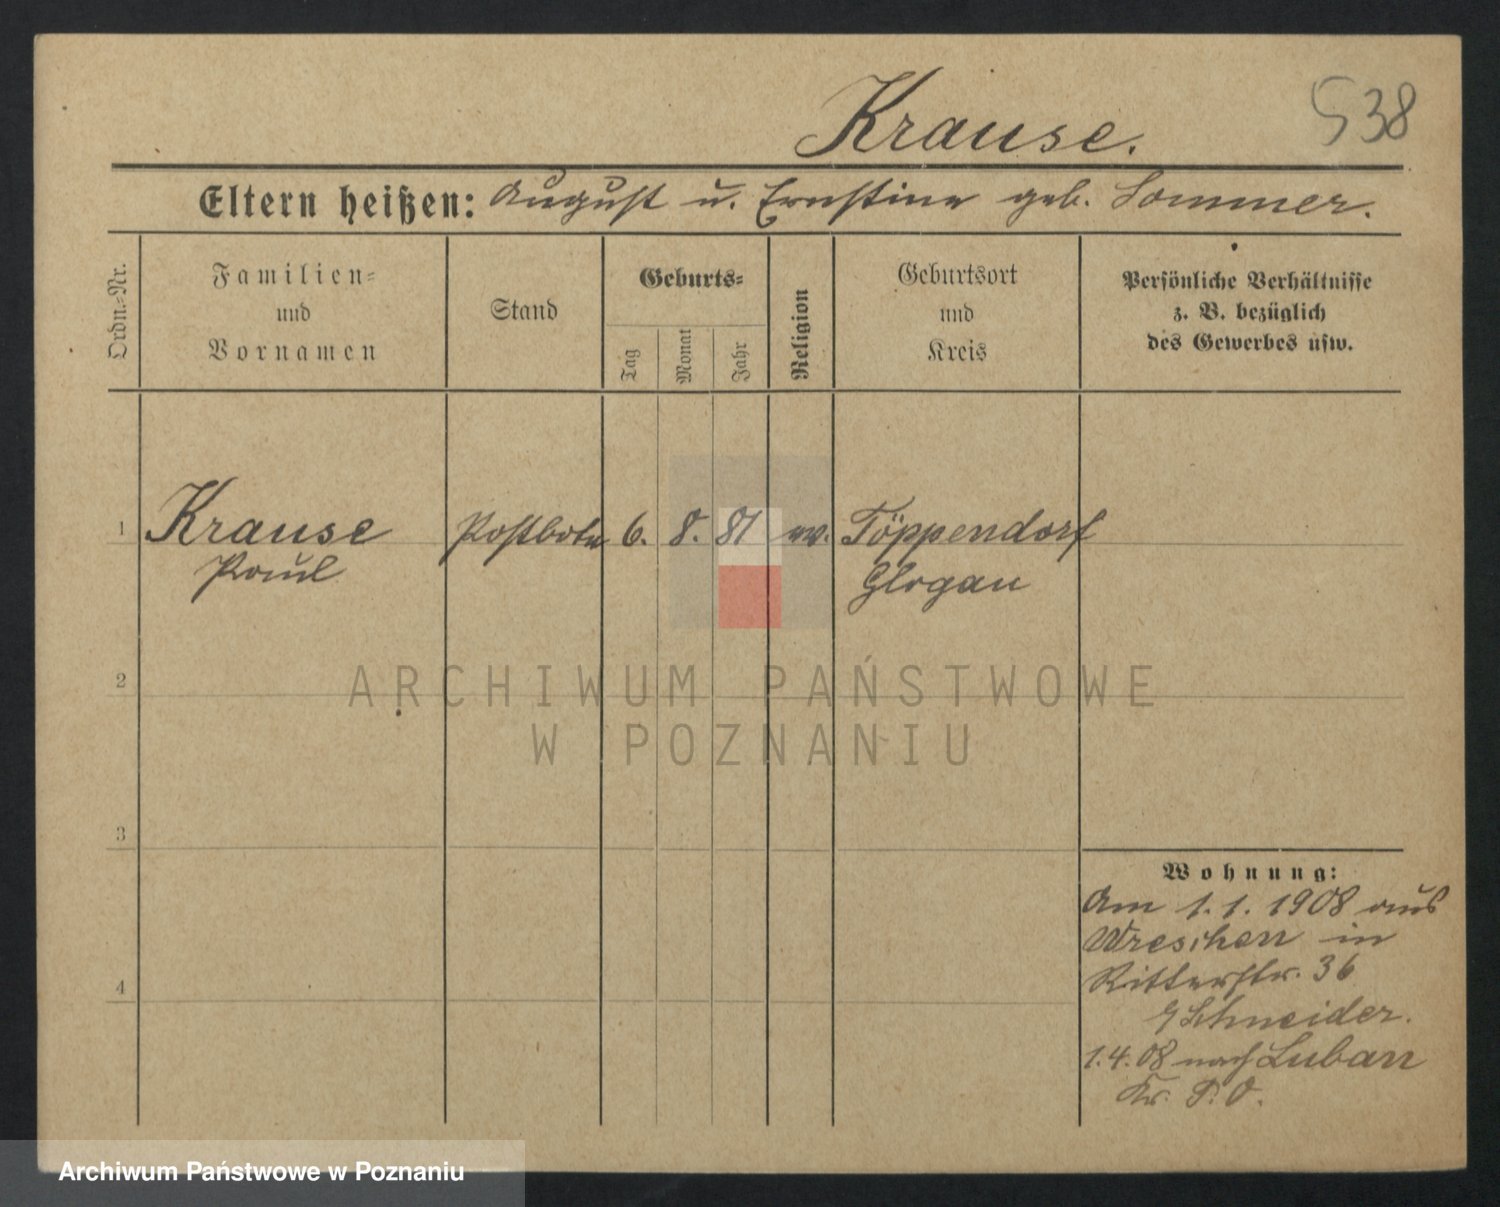 Krause.
538
Eltern heißen: August u. Ernstine geb. Sommer.
Ordn.-Nr.
Familien-
und
Vornamen
Stand
Geburts-
Tag
Monat
Jahr
Religion
Geburtsort
und
Kreis
Persönliche Verhältnisse
z. B. bezüglich
des Gewerbes usw.
1 Krause Postbote 6. 8. 81 ev. Töppendorf
Paul Glogau
2
3
4
Wohnung:
Am 1.1.1908 aus
Wreschen in
Ritterstr. 36
Schneider.
1.4.08 nach Luban
Kr. P. O.
ARCHIWUM PAŃSTWOWE
W POZNANIU
Archiwum Państwowe w Poznaniu